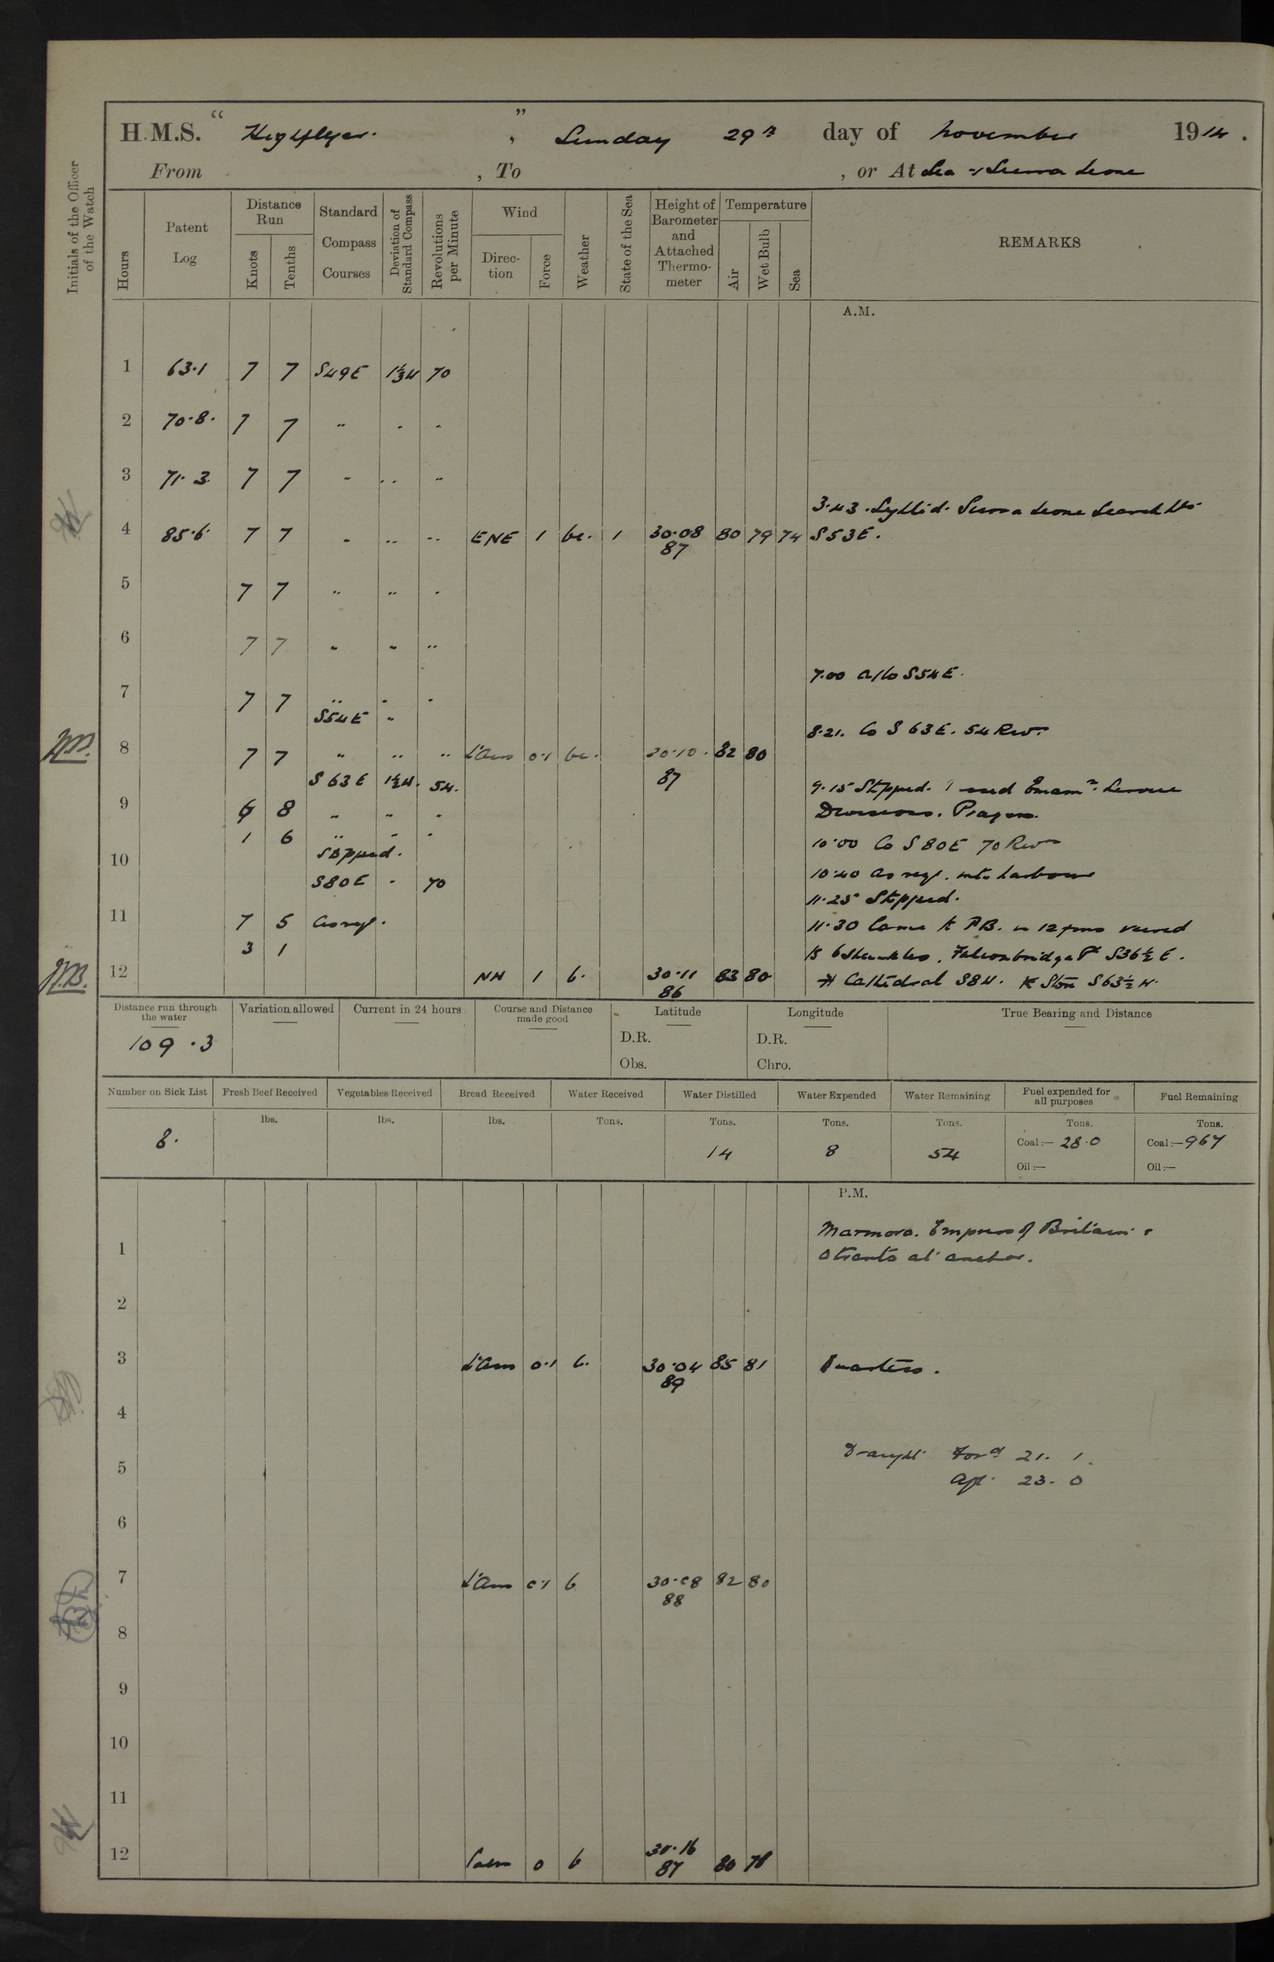 H.M.S. " Highflyer. " , Sunday 29th day of November 1914 .
From , To , or At Sea & Sierra Leone
Initials of the Officer of the Watch
Hours
Patent Log
Distance Run
Knots
Tenths
Standard Compass Courses
Deviation of Standard Compass
Revolutions per Minute
Wind
Direc-tion
Force
Weather
State of the Sea
Height of Barometer and Attached Thermo-meter
Temperature
Air
Wet Bulb
Sea
REMARKS
A.M.
1 63.1 7 7 S49E 1¾W 70
2 70.8. 7 7 " " "
3 71.3 7 7 " " "
3.43. Sighted Sierra Leone Search Lts
4 85.6 7 7 " " " ENE 1 bc. 1 30.08 80 79 74 S53E.
87
5 7 7 " " "
6 7 7 " " "
7.00 a/co S54E.
7 7 7 " " "
S54E "
8.21. Co S63E. 54 Revs
8 7 7 " " " L'Airs 0.1 bc. 30.10. 82 80
S63E 1½W. 54. 87
9.15 Stopped.
9 6 8 " " " Divisions. Prayers.
1 6 " " " 10.00 Co S80E 70 Revs
Stopped.
10 10.40 As req. into harbour
S80E " 70
11.25 Stopped.
11 7 5 As req. 11.30 Came to P.B. in 12 fms veered
3 1 to 6 shackles. Falconbridge Pt S36½E.
12 NW 1 b. 30.11 83 80 Cathedral S8W. S63½W.
86
Distance run through the water
109.3
Variation allowed
Current in 24 hours
Course and Distance made good
Latitude
D.R.
Obs.
Longitude
D.R.
Chro.
True Bearing and Distance
Number on Sick List Fresh Beef Received Vegetables Received Bread Received Water Received Water Distilled Water Expended Water Remaining Fuel expended for all purposes Fuel Remaining
lbs. lbs. lbs. Tons. Tons. Tons. Tons. Tons. Tons.
8. 14 8 54 Coal:— 28.0 Coal:— 967
Oil:— Oil:—
P.M.
Marmora. Empress of Britain &
1 Otranto at anchor.
2
3 L'Airs 0.1 b. 30.04 85 81 Quarters.
89
4
Draught Ford 21. 1.
5
Aft. 23. 0
6
7 L'Airs 0.1 b 30.08 82 80
88
8
9
10
11
12 Calm 0 b 30.16 80 78
87